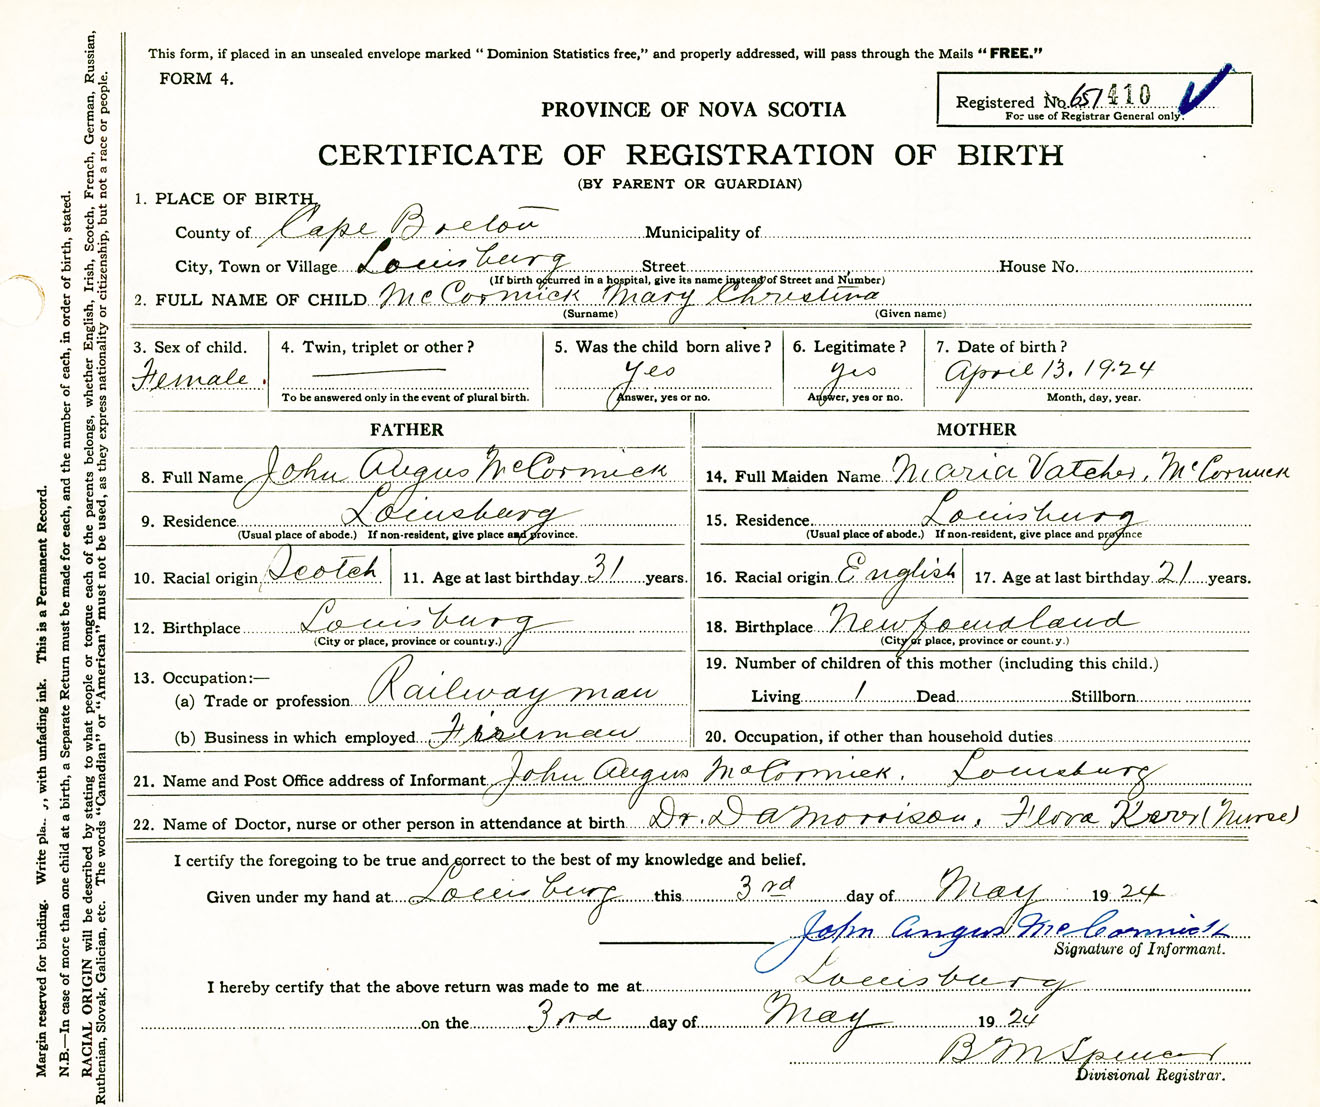 This form, if placed in an unsealed envelope marked "Dominion Statistics free," and properly addressed, will pass through the Mails "FREE."
FORM 4.
Registered No. 651 410
For use of Registrar General only.
PROVINCE OF NOVA SCOTIA
CERTIFICATE OF REGISTRATION OF BIRTH
(BY PARENT OR GUARDIAN)
1. PLACE OF BIRTH,
County of Cape Breton Municipality of
City, Town or Village Louisburg Street House No.
(If birth occurred in a hospital, give its name instead of Street and Number)
2. FULL NAME OF CHILD McCormick Mary Christina
(Surname) (Given name)
3. Sex of child. 4. Twin, triplet or other? 5. Was the child born alive? 6. Legitimate? 7. Date of birth?
Female. Yes Yes April 13, 1924
To be answered only in the event of plural birth. Answer, yes or no. Answer, yes or no. Month, day, year.
FATHER MOTHER
8. Full Name John Angus McCormick 14. Full Maiden Name Maria Vatcher, McCormick
9. Residence Louisburg 15. Residence Louisburg
(Usual place of abode.) If non-resident, give place and province. (Usual place of abode.) If non-resident, give place and province
10. Racial origin Scotch 11. Age at last birthday 31 years. 16. Racial origin English 17. Age at last birthday 21 years.
12. Birthplace Louisburg 18. Birthplace Newfoundland
(City or place, province or country.) (City or place, province or country.)
13. Occupation:— 19. Number of children of this mother (including this child.)
(a) Trade or profession Railway man Living 1 Dead Stillborn
(b) Business in which employed Fireman 20. Occupation, if other than household duties
21. Name and Post Office address of Informant John Angus McCormick. Louisburg
22. Name of Doctor, nurse or other person in attendance at birth Dr. D A Morrison, Flora Kerr (Nurse)
I certify the foregoing to be true and correct to the best of my knowledge and belief.
Given under my hand at Louisburg this 3rd day of May 1924
John Angus McCormick
Signature of Informant.
I hereby certify that the above return was made to me at Louisburg
on the 3rd day of May 1924
B M Spencer
Divisional Registrar.
Margin reserved for binding. Write with unfading ink. This is a Permanent Record.
N.B.—In case of more than one child at a birth, a Separate Return must be made for each, and the number of each, in order of birth, stated.
RACIAL ORIGIN will be described by stating to what people or tongue each of the parents belongs, whether English, Irish, Scotch, French, German, Russian,
Ruthenian, Slovak, Galician, etc. The words "Canadian" or "American" must not be used, as they express nationality or citizenship, but not a race or people.